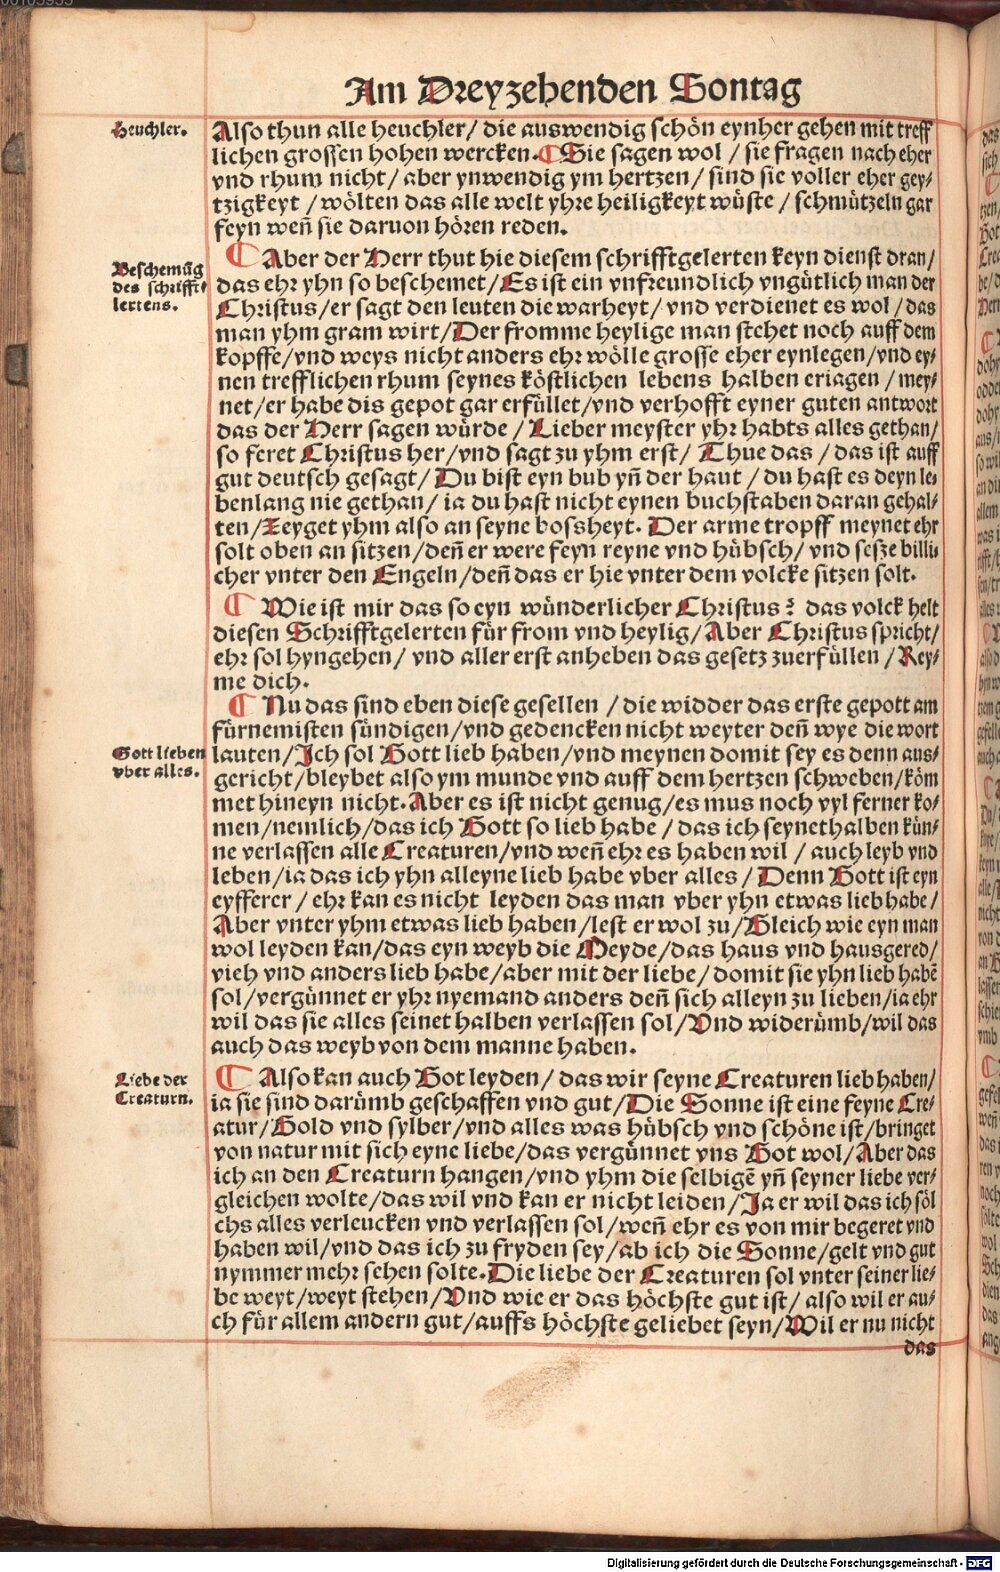 Am Dreyzehenden Sontag
Heuchler.
Also thun alle heuchler / die auswendig schön eynher gehen mit treff
lichen grossen hohen wercken. ¶ Sie sagen wol / sie fragen nach eher
vnd rhum nicht / aber ynwendig ym hertzen / sind sie voller eher gey⸗
tzigkeyt / wölten das alle welt yhre heiligkeyt wüste / schmützeln gar
feyn weñ sie daruon hören reden.
Beschemũg
des schrifft⸗
lertens.
¶ Aber der Herr thut hie diesem schrifftgelerten keyn dienst dran /
das ehr yhn so beschemet / Es ist ein vnfreundlich vngütlich man der
Christus / er sagt den leuten die warheyt / vnd verdienet es wol / das
man yhm gram wirt / Der fromme heylige man stehet noch auff dem
kopffe / vnd weys nicht anders ehr wölle grosse eher eynlegen / vnd ey⸗
nen trefflichen rhum seynes köstlichen lebens halben eriagen / mey⸗
net / er habe dis gepot gar erfüllet / vnd verhofft eyner guten antwort
das der Herr sagen würde / Lieber meyster yhr habts alles gethan /
so feret Christus her / vnd sagt zu yhm erst / Thue das / das ist auff
gut deutsch gesagt / Du bist eyn bub yñ der haut / du hast es deyn le⸗
benlang nie gethan / ia du hast nicht eynen buchstaben daran gehal⸗
ten / Zeyget yhm also an seyne bossheyt. Der arme tropff meynet ehr
solt oben an sitzen / deñ er were feyn reyne vnd hübsch / vnd sesze billi⸗
cher vnter den Engeln / deñ das er hie vnter dem volcke sitzen solt.
¶ Wie ist mir das so eyn wünderlicher Christus? das volck helt
diesen Schrifftgelerten für from vnd heylig / Aber Christus spricht /
ehr sol hyngehen / vnd aller erst anheben das gesetz zuerfüllen / Rey⸗
me dich.
¶ Nu das sind eben diese gesellen / die widder das erste gepott am
fürnemisten sündigen / vnd gedencken nicht weyter deñ wye die wort
Gott lieben
vber alles.
lauten / Jch sol Gott lieb haben / vnd meynen domit sey es denn aus⸗
gericht / bleybet also ym munde vnd auff dem hertzen schweben / köm
met hineyn nicht. Aber es ist nicht genug / es mus noch vyl ferner ko⸗
men / nemlich / das ich Gott so lieb habe / das ich seynethalben kün⸗
ne verlassen alle Creaturen / vnd weñ ehr es haben wil / auch leyb vnd
leben / ia das ich yhn alleyne lieb habe vber alles / Denn Gott ist eyn
eyfferer / ehr kan es nicht leyden das man vber yhn etwas lieb habe /
Aber vnter yhm etwas lieb haben / lest er wol zu / Gleich wie eyn man
wol leyden kan / das eyn weyb die Meyde / das haus vnd hausgered /
vieh vnd anders lieb habe / aber mit der liebe / domit sie yhn lieb habẽ
sol / vergünnet er yhr nyemand anders deñ sich alleyn zu lieben / ia ehr
wil das sie alles seinet halben verlassen sol / Vnd widerümb / wil das
auch das weyb von dem manne haben.
Liebe der
Creaturn.
¶ Also kan auch Got leyden / das wir seyne Creaturen lieb haben /
ia sie sind darümb geschaffen vnd gut / Die Sonne ist eine feyne Cre⸗
atur / Gold vnd sylber / vnd alles was hübsch vnd schöne ist / bringet
von natur mit sich eyne liebe / das vergünnet vns Got wol / Aber das
ich an den Creaturn hangen / vnd yhm die selbigẽ yñ seyner liebe ver⸗
gleichen wolte / das wil vnd kan er nicht leiden / Ja er wil das ich söl
chs alles verleucken vnd verlassen sol / weñ ehr es von mir begeret vnd
haben wil / vnd das ich zu fryden sey / ab ich die Sonne / gelt vnd gut
nymmer mehr sehen solte. Die liebe der Creaturen sol vnter seiner lie⸗
be weyt / weyt stehen / Vnd wie er das höchste gut ist / also wil er au⸗
ch für allem andern gut / auffs höchste geliebet seyn / Wil er nu nicht
das
Digitalisierung gefördert durch die Deutsche Forschungsgemeinschaft - DFG